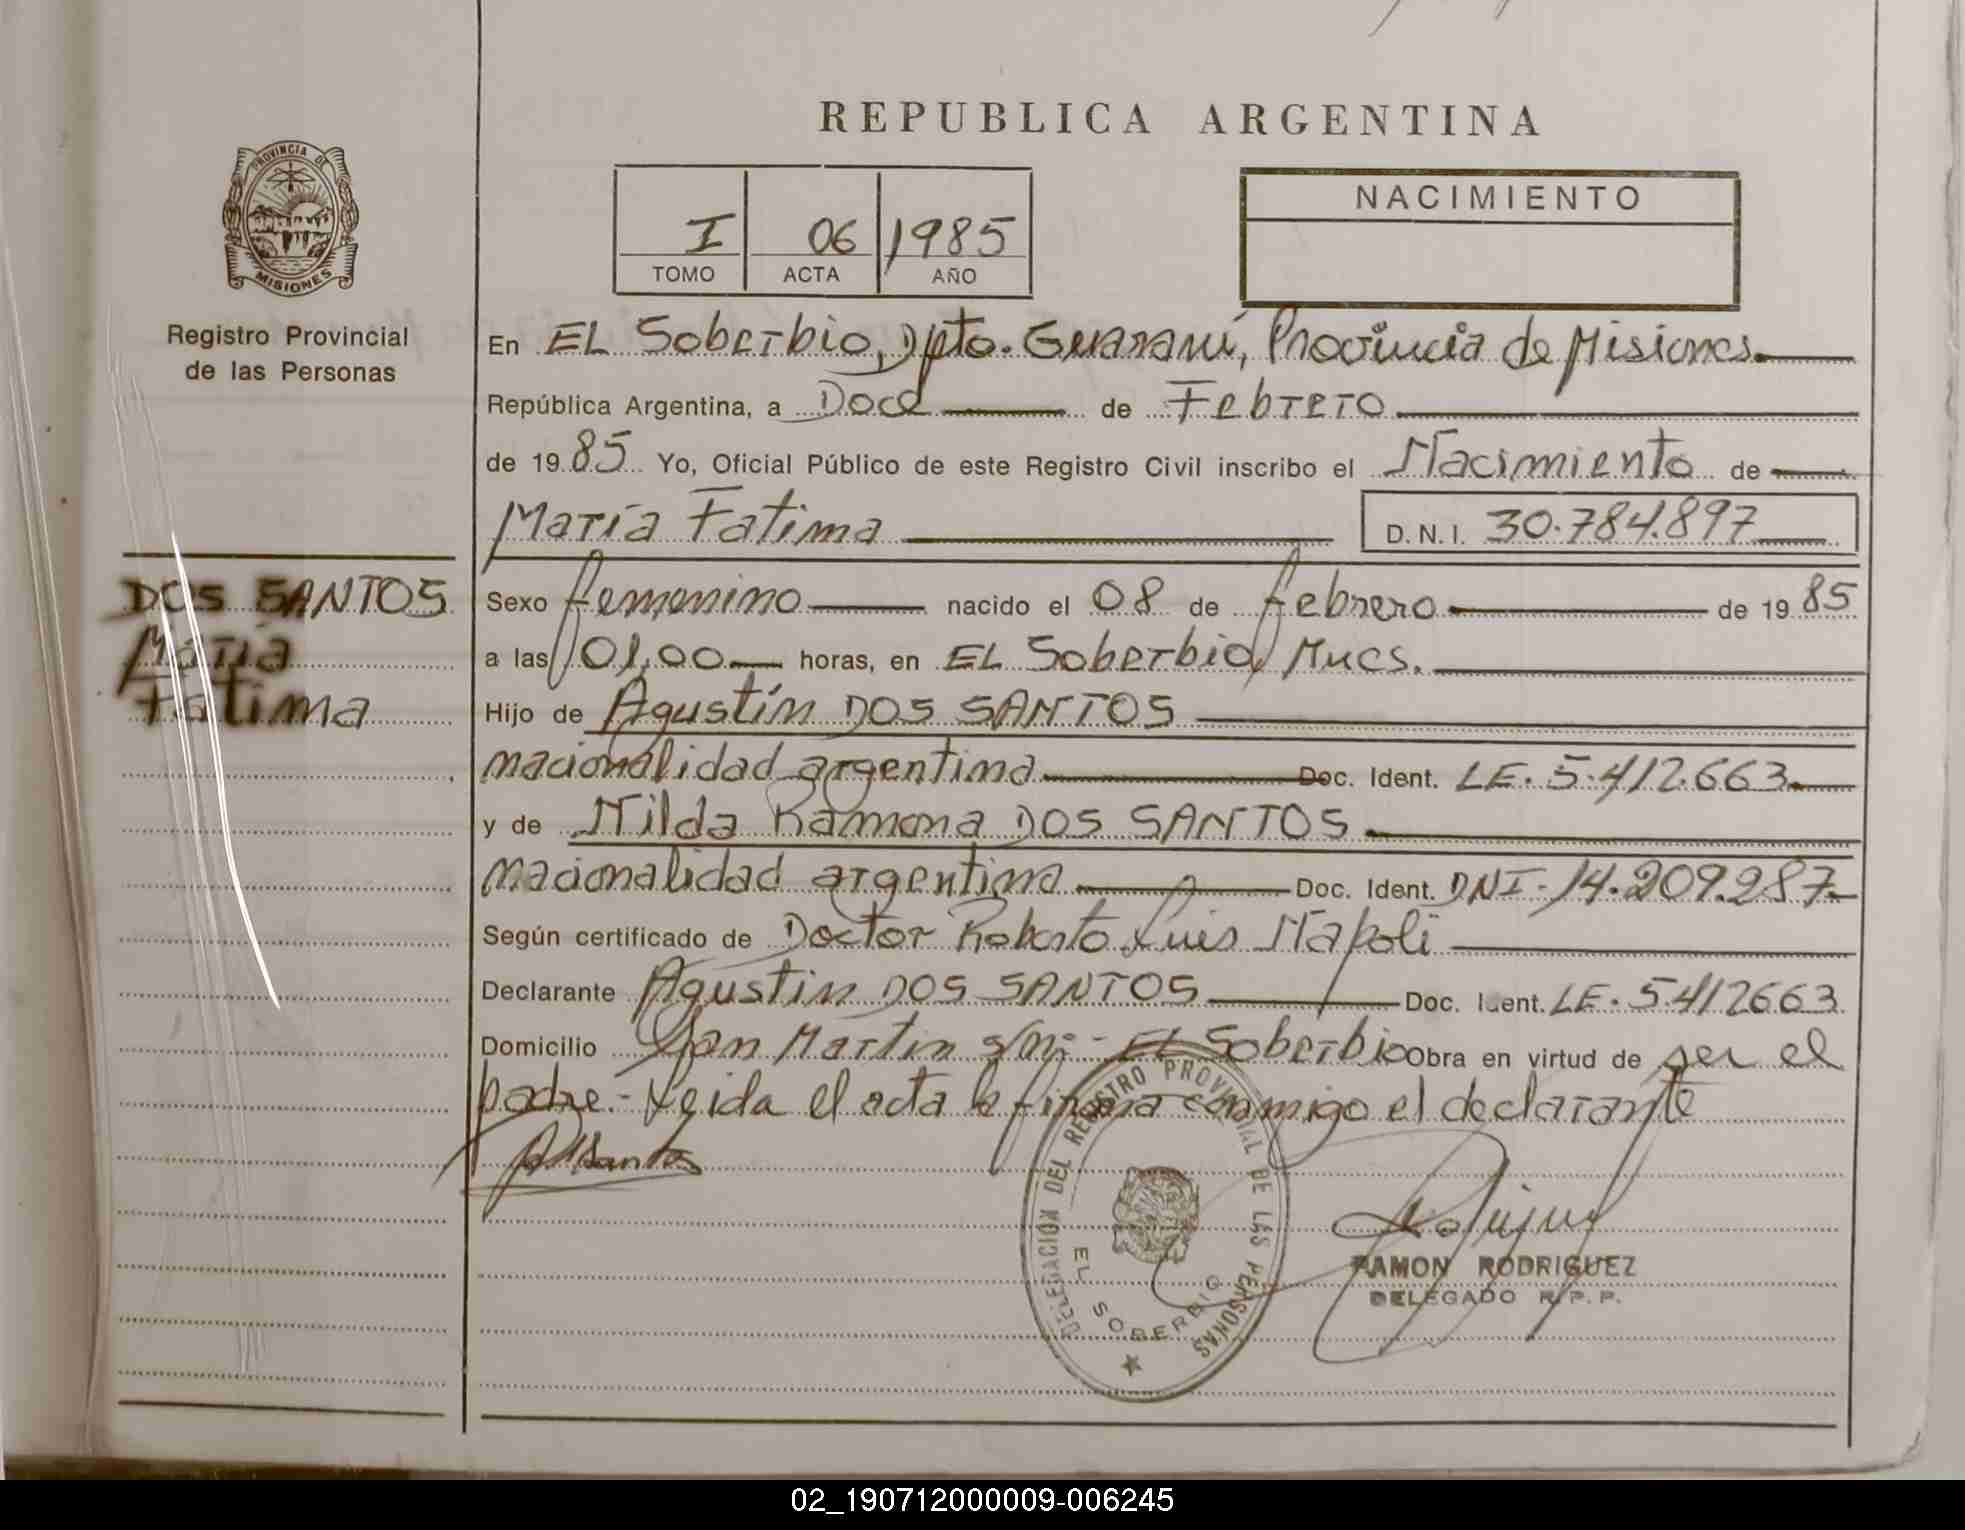 REPUBLICA ARGENTINA
PROVINCIA DE
MISIONES
Registro Provincial
de las Personas
I 06 1985
TOMO ACTA AÑO
NACIMIENTO
En EL Soberbio, Dpto. Guaraní, Provincia de Misiones.
República Argentina, a Doce de Febrero
de 19 85 Yo, Oficial Público de este Registro Civil inscribo el Nacimiento de
María Fatima D.N.I. 30.784.897
DOS SANTOS
María
Fatima
Sexo femenino nacido el 08 de febrero de 19 85
a las 01,00 horas, en EL Soberbio, Mnes.
Hijo de Agustín DOS SANTOS
nacionalidad argentina Doc. Ident. LE. 5.412.663.
y de Nilda Ramona DOS SANTOS
nacionalidad argentina Doc. Ident. DNI. 14.209.287.
Según certificado de Doctor Roberto Luis Napoli
Declarante Agustin DOS SANTOS Doc. Ident. LE. 5.412663
Domicilio San Martin s/n: - EL Soberbio Obra en virtud de ser el
padre.- Leida el acta la firma conmigo el declarante
DELEGACION DEL REGISTRO PROVINCIAL DE LAS PERSONAS
EL SOBERBIO
RAMON RODRIGUEZ
DELEGADO R.P.P.
02_190712000009-006245